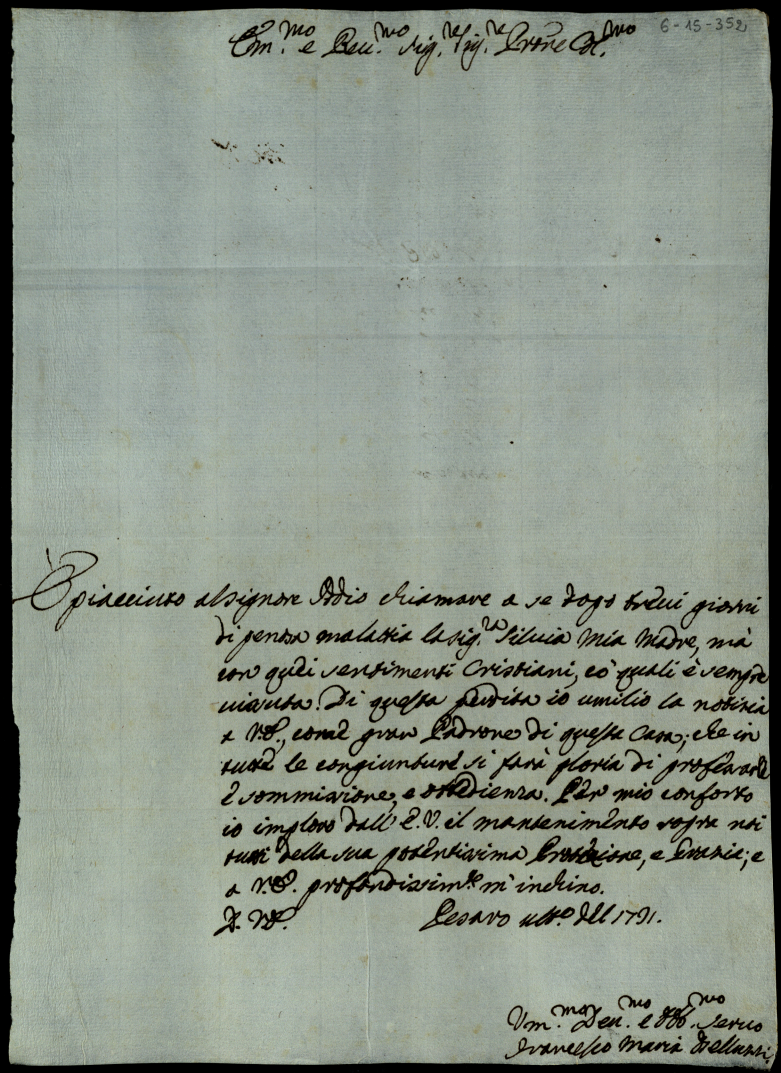 6-15-352
Em.mo e Reu.mo Sig.re Sig.re Prone Col.mo
È piacciuto al Signore Iddio chiamare a se dopo breui giorni
di penosa malattia la Sig.ra Siluia mia Madre, mà
con quei sentimenti Cristiani, co' quali è sempre
uissuta. Di questa perdita io umilio la notizia
a V.E., come gran Padrone di questa Casa; che in
tutte le congiunture si farà gloria di professarle
e sommissione, e obbedienza. Per mio conforto
io imploro dall' E.V. il mantenimento sopra noi
tutti della sua potentissima Protezione, e Grazia; e
a V.E. profondissim.te m' inchino.
D. V.E. Pesaro ult.o del 1721.
Vm.mo Deu.mo e Obb.mo Seruo
Francesco Maria